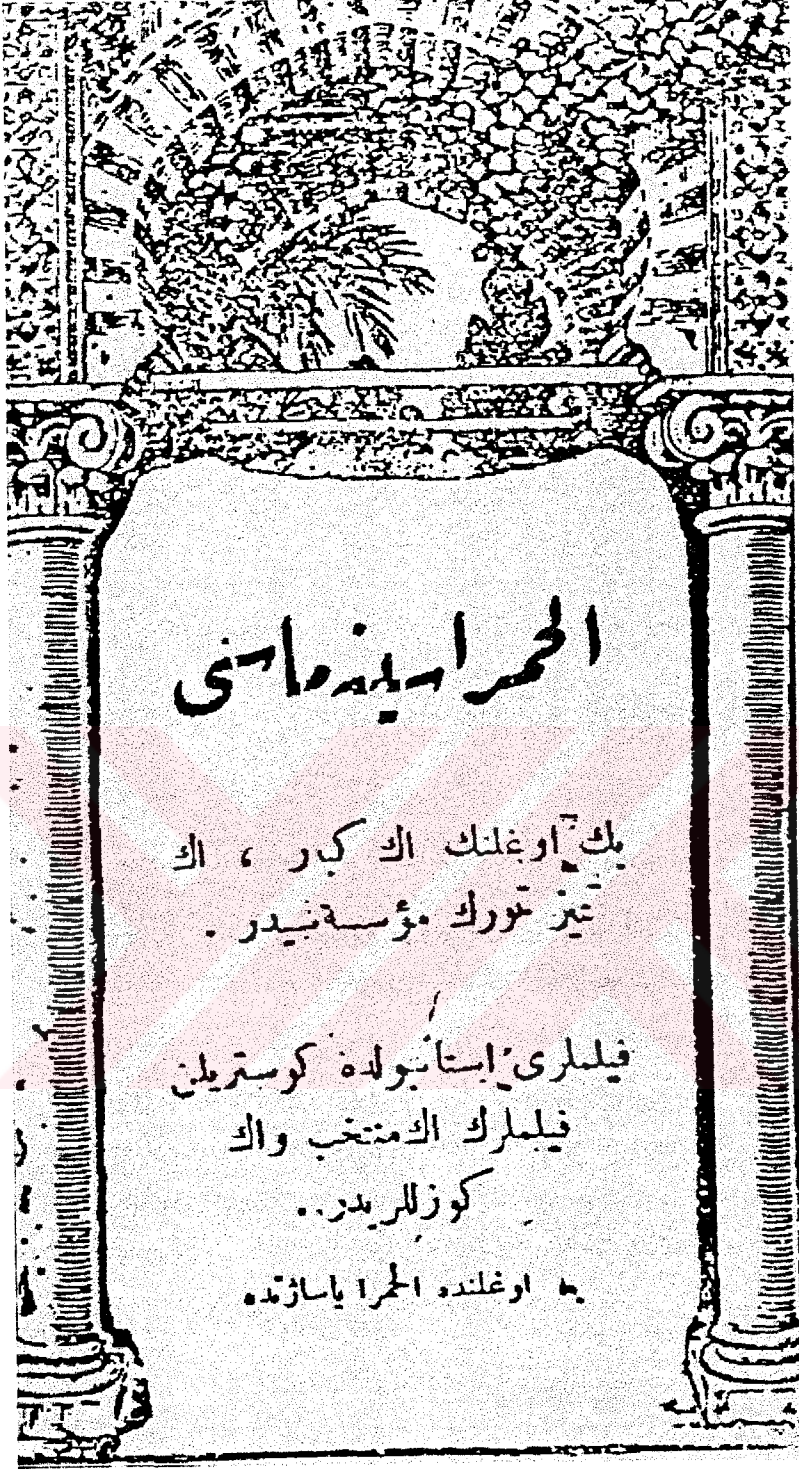 الحمرا سينه‌ماسی
بك اوغلنك اك كبار ، اك
تميز تورك مؤسسه‌سيدر .
فيلملری استانبولده كوستريلن
فيلملرك اك منتخب واك
كوزللريدر..
بك اوغلنده الحمرا پاساژنده